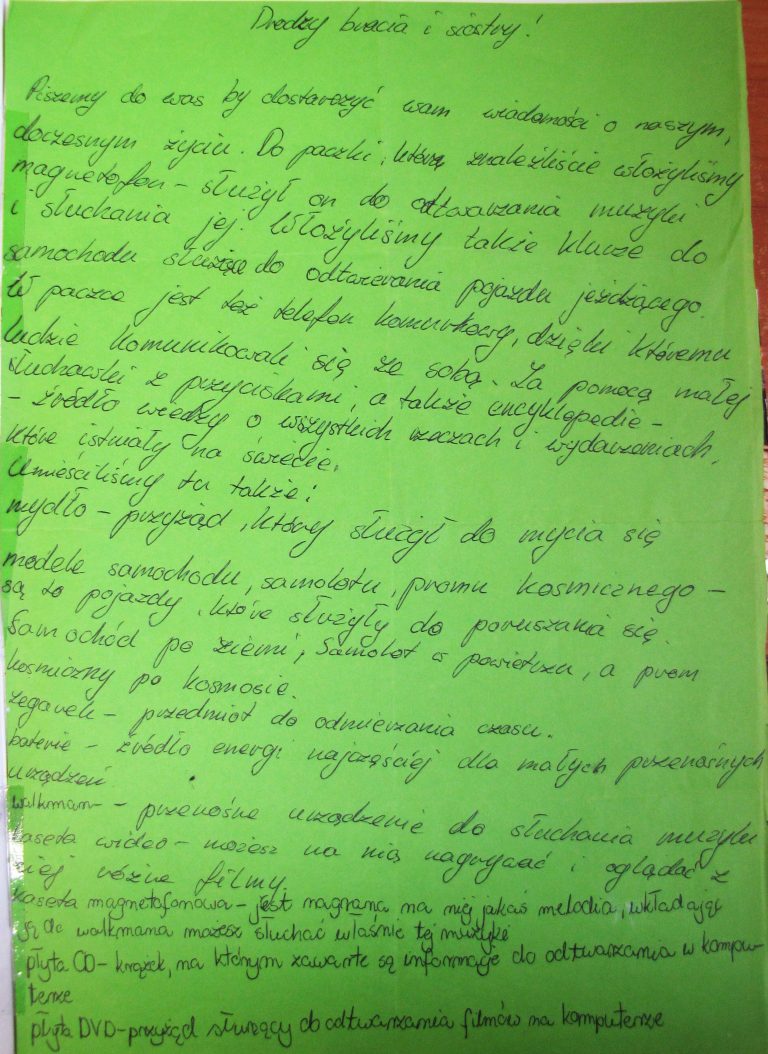 Drodzy bracia i siostry!
Piszemy do was by dostarczyć wam wiadomości o naszym,
doczesnym życiu. Do paczki, którą znaleźliście włożyliśmy
magnetofon – służył on do odtwarzania muzyki
i słuchania jej. Włożyliśmy także klucze do
samochodu służące do odtwierania pojazdu jeżdżącego.
W paczce jest też telefon komurkowy, dzięki któremu
ludzie komunikowali się ze sobą. Za pomocą małej
słuchawki z przyciskami, a także encyklopedie –
– źródło wiedzy o wszystkich rzeczach i wydarzeniach,
które istniały na świecie.
Umieściliśmy tu także:
mydło – przyżąd, który służył do mycia się
modele samochodu, samolotu, promu kosmicznego –
są to pojazdy, które służyły do poruszania się.
Samochód po ziemi, Samolot w powietrzu, a prom
kosmiczny po kosmosie.
zegarek – przedmiot do odmierzania czasu.
baterie – źródło energi najczęściej dla małych przenośnych
urządzeń.
walkman – przenośne urządzenie do słuchania muzyki
kaseta wideo – możesz na nią nagrywać i oglądać z
niej różne filmy
kaseta magnetofonowa – jest nagrana na niej jakaś melodia, wkładając
ją do walkmana możesz słuchać właśnie tej muzyke
płyta CD – krążek, na którym zawarte są informacje do odtwarzania w kompu-
terze
płyta DVD – przyżąd słurzący do odtwarzania filmów na komputerze